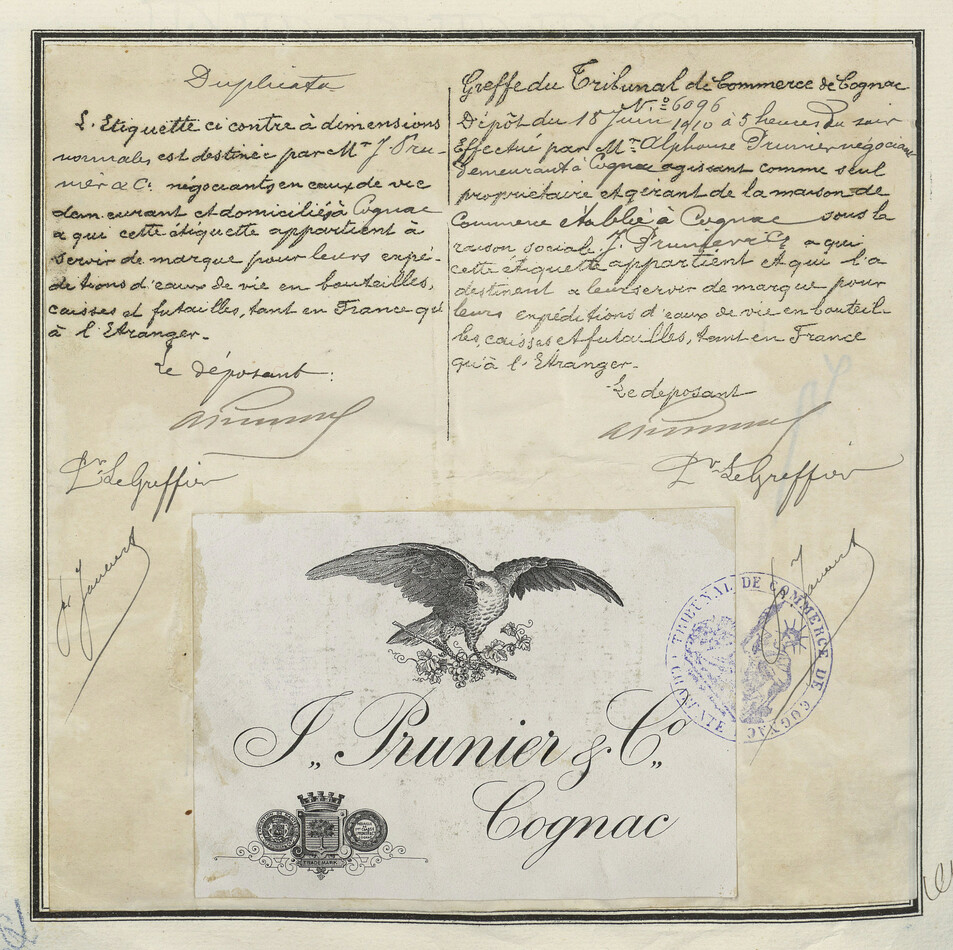 Duplicata
L'Etiquette ci contre à dimensions
normales est destinée par Mr J. Pru-
nier & Cº négociants en eaux de vie
demeurant et domiciliés à Cognac
a qui cette étiquette appartient à
servir de marque pour leurs expé-
ditions d'eaux de vie en bouteilles,
caisses et futailles, tant en France qu'
à l'Etranger.
Le déposant :
Pr Le Greffier
Greffe du Tribunal de Commerce de Cognac
Nº 6096
Dépôt du 18 Juin 1910 à 5 heures du soir
Effectué par Mr Alphonse Prunier négociant
demeurant à Cognac agissant comme seul
propriétaire et gérant de la maison de
Commerce établie à Cognac sous la
raison sociale J. Prunier & Cº a qui
cette étiquette appartient et qui l'a
destinent a leur servir de marque pour
leurs expéditions d'eaux de vie en bouteil-
les, caisses et futailles, tant en France
qu'à l'Etranger.
Le deposant
Pr Le Greffier
J„ Prunier & Cº„
Cognac
TRADE MARK
TRIBUNAL DE COMMERCE DE COGNAC
CHARENTE